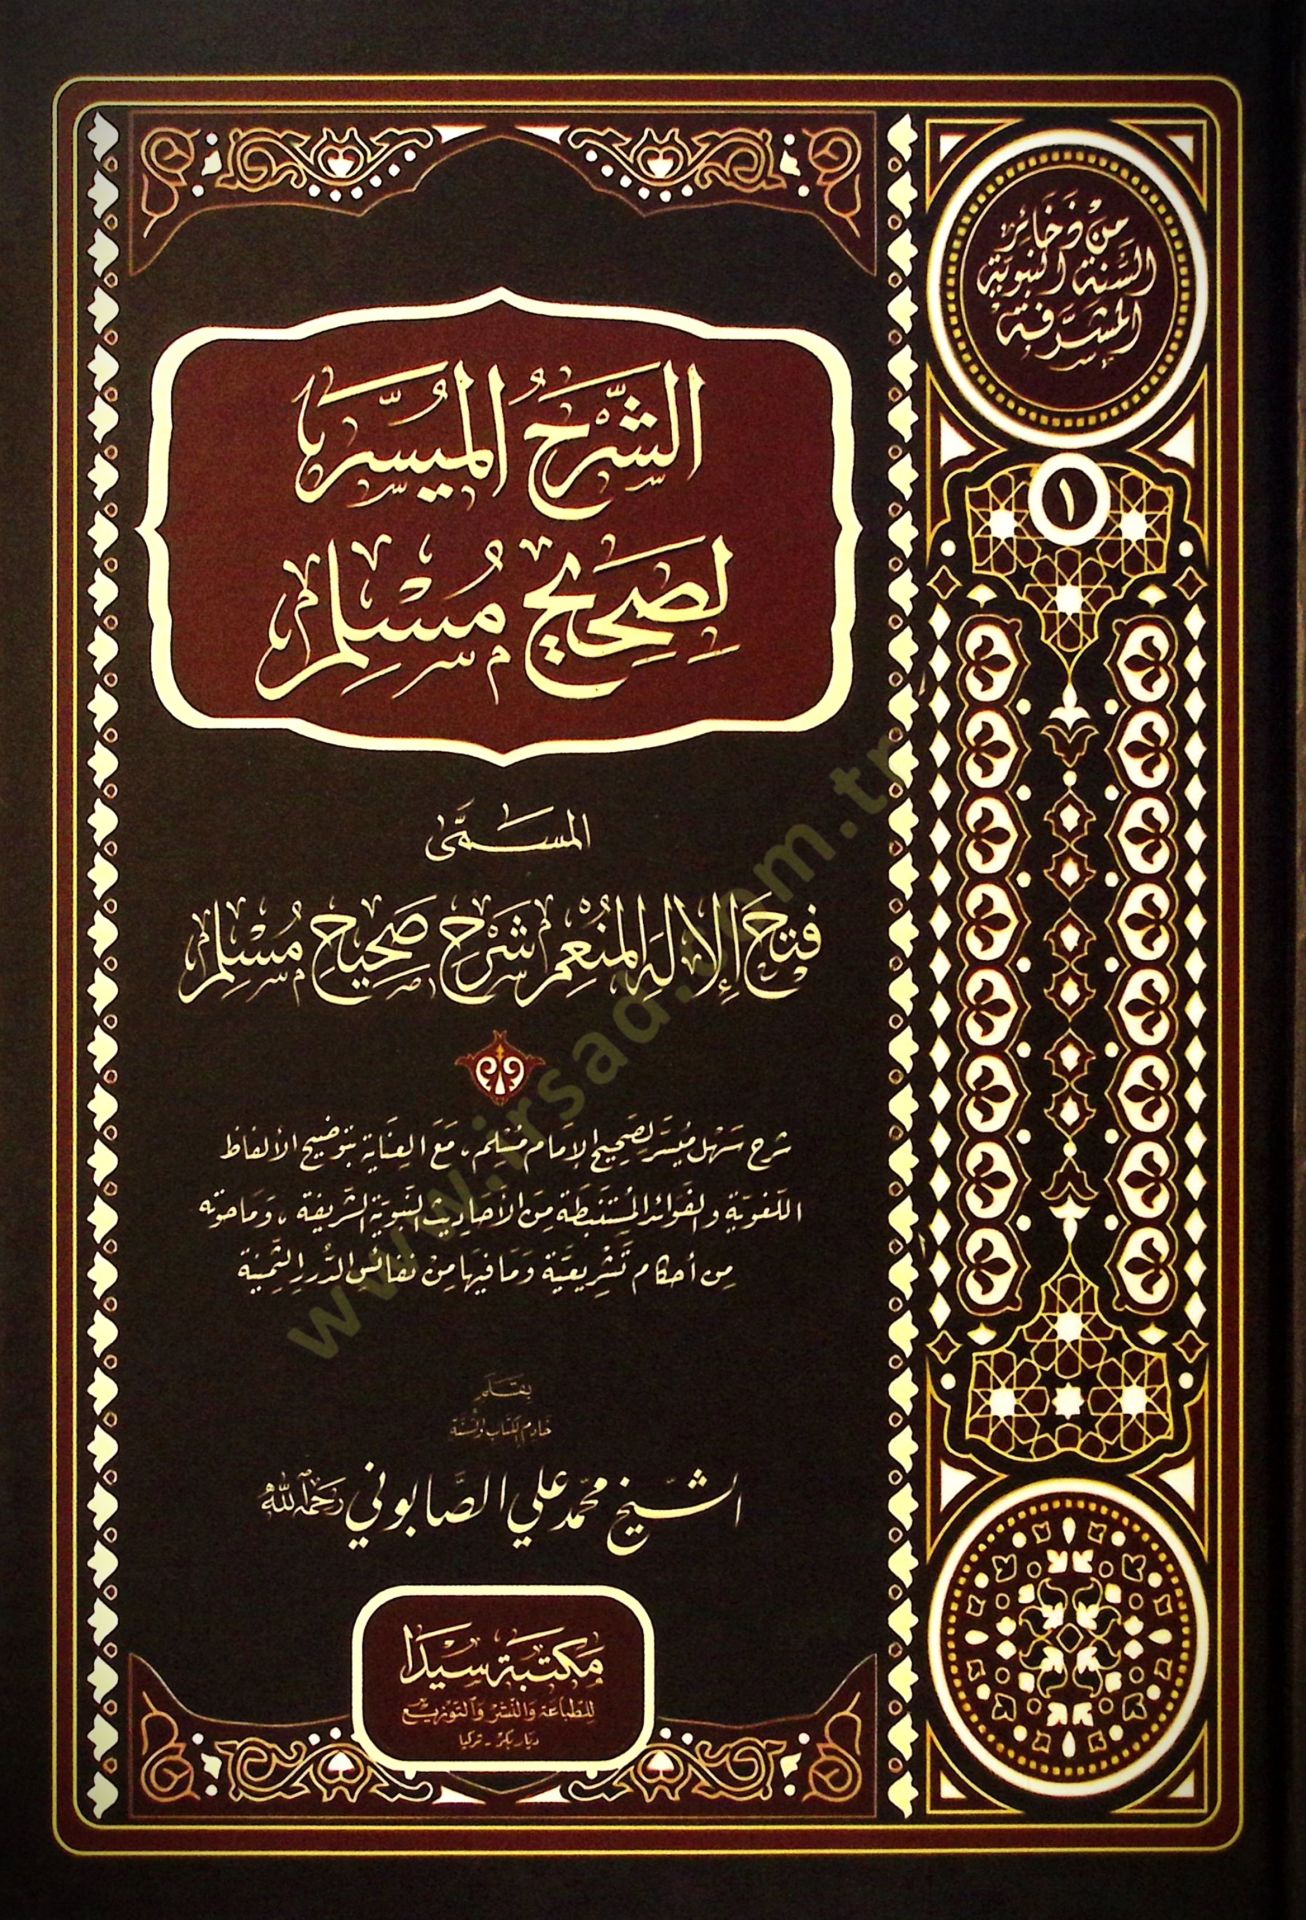 من ذخائر
السنة النبوية
المشرفة
١
الشَّرْحُ المُيَسَّر
لِصَحِيحِ مُسْلِم
المسمى
فتح الإله المنعم شرح صحيح مسلم
شرح سهل ميسر لصحيح الإمام مسلم، مع العناية بتوضيح الألفاظ
اللغوية والفوائد المستنبطة من الأحاديث النبوية الشريفة، وما حوته
من أحكام تشريعية وما فيها من نفائس الدرر الثمينة
بقلم
خادم الكتاب والسنة
الشيخ محمد علي الصابوني رحمه الله
مكتبة سيدا
للطباعة والنشر والتوزيع
ديار بكر - تركيا
www.irsad.com.tr